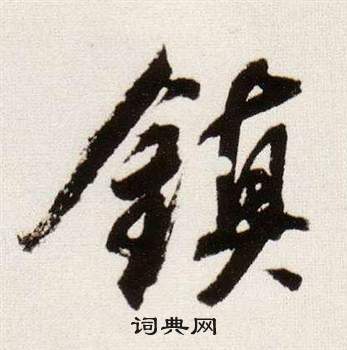 鎮
词典网